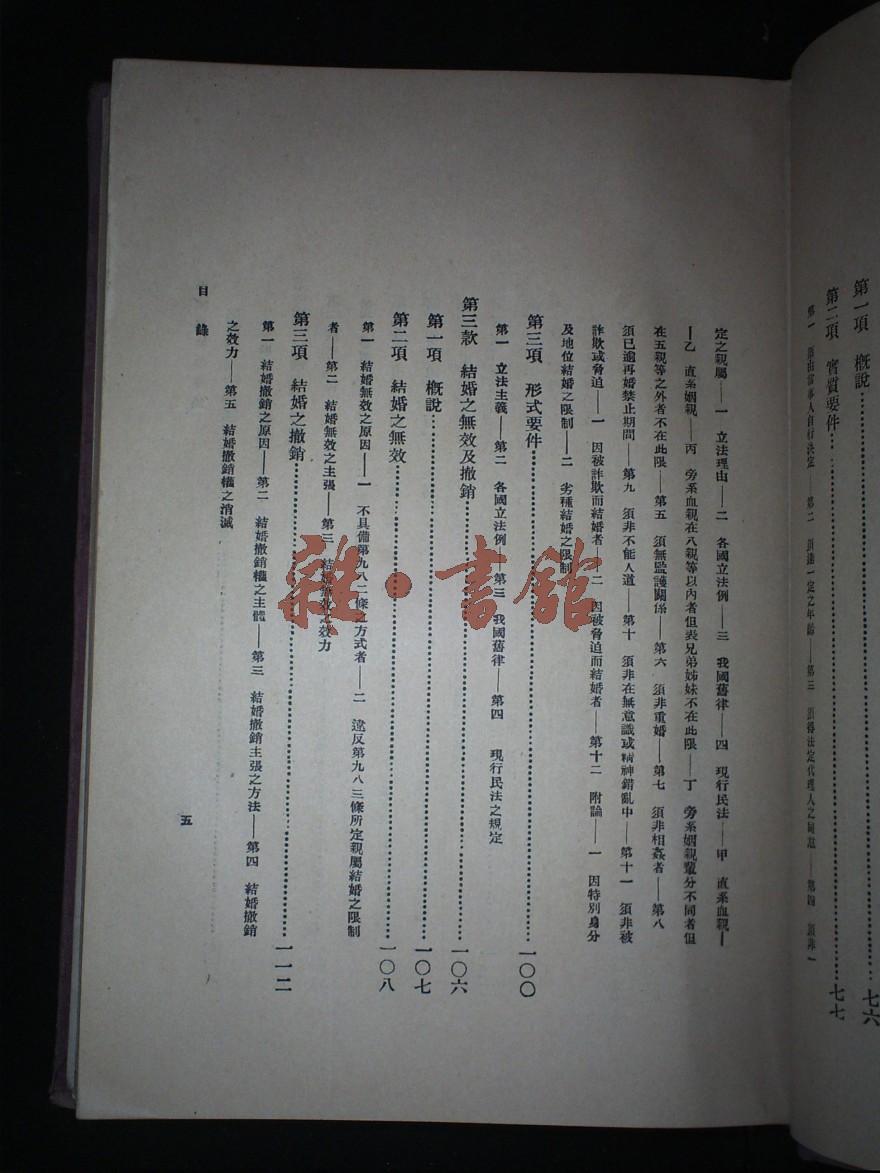 第一項　概說……七六
第二項　實質要件……七七
第一　須由當事人自行決定——第二　須達一定之年齡——第三　須得法定代理人之同意——第四　須非一
定之親屬——一　立法理由——二　各國立法例——三　我國舊律——四　現行民法——甲　直系血親—
—乙　直系姻親——丙　旁系血親在八親等以內者但表兄弟姊妹不在此限——丁　旁系姻親輩分不同者但
在五親等之外者不在此限——第五　須無監護關係——第六　須非重婚——第七　須非相姦者——第八
須已逾再婚禁止期間——第九　須非不能人道——第十　須非在無意識或精神錯亂中——第十一　須非被
詐欺或脅迫——一　因被詐欺而結婚者——二　因被脅迫而結婚者——第十二　附論——一　因特別身分
及地位結婚之限制——二　劣種結婚之限制
第三項　形式要件……一〇〇
第一　立法主義——第二　各國立法例——第三　我國舊律——第四　現行民法之規定
第三款　結婚之無效及撤銷……一〇六
第一項　概說……一〇七
第二項　結婚之無效……一〇八
第一　結婚無效之原因——一　不具備第九八二條之方式者——二　違反第九八三條所定親屬結婚之限制
者——第二　結婚無效之主張——第三　結婚無效之效力
第三項　結婚之撤銷……一一二
第一　結婚撤銷之原因——第二　結婚撤銷權之主體——第三　結婚撤銷主張之方法——第四　結婚撤銷
之效力——第五　結婚撤銷權之消滅
目錄
五
雜·書館